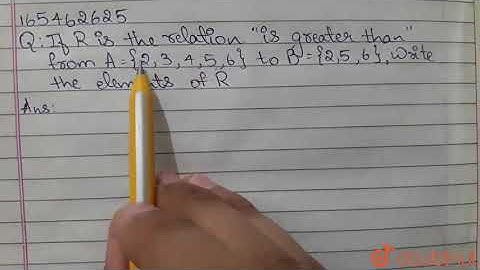 165462625
Q: If R is the relation "is greater than"
from A = {2, 3, 4, 5, 6} to B = {2,5,6}, write
the elements of R
Ans: